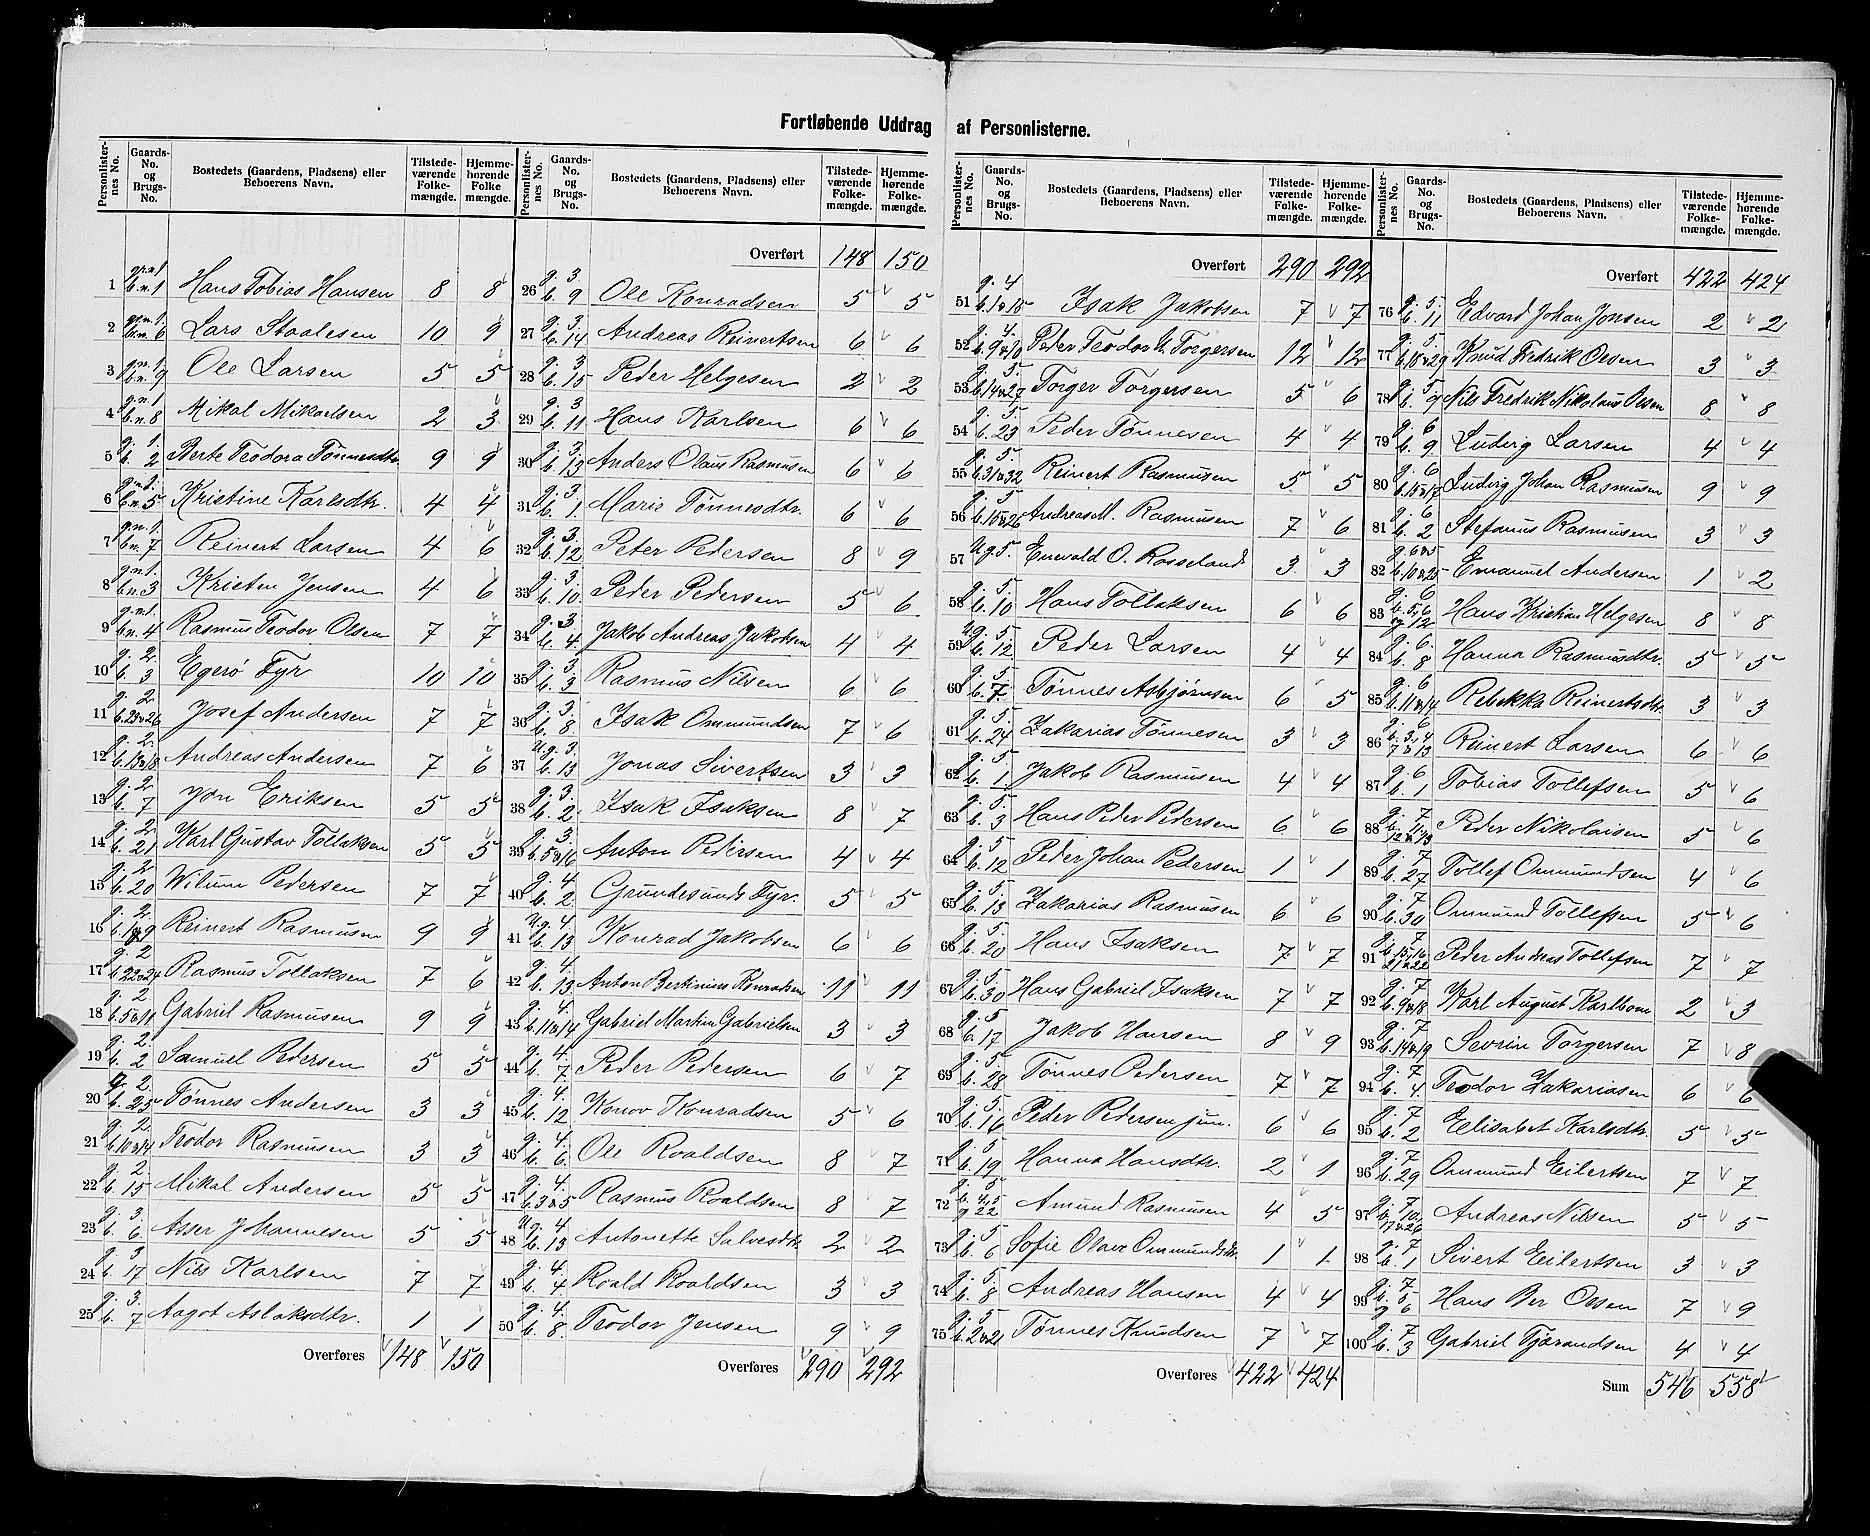 Fortløbende Uddrag af Personlisterne.
Personlisternes No. Gaards-No. og Brugs-No. Bostedets (Gaardens, Pladsens) eller Beboerens Navn. Tilstedeværende Folkemængde. Hjemmehørende Folkemængde.
1 gr.n.1 b.n.1 Hans Tobias Hansen 8 8
2 gr.n.1 b.n.6 Lars Staalesen 10 9
3 g.n.1 b.n.9 Ole Larsen 5 5
4 g.n.1 b.n.8 Mikal Mikaelsen 2 3
5 g. 1. b. 2 Berte Teodora Tønnesdtr. 9 9
6 g.n.1. b.n.5 Kristine Karlsdtr. 4 4
7 g.n.1 b.n.7 Reinert Larsen 4 6
8 g.n.1. b.n.3 Kristen Jensen 4 6
9 g.n.1. b.n.4 Rasmus Teodor Olsen 7 7
10 g. 2. b. 3 Egerø Fyr 10 10
11 g. 2. b. 23 & 26 Josef Andersen 7 7
12 g. 2. b. 13 & 18 Andreas Andersen 7 6
13 g. 2 b. 7 Jon Eriksen 5 5
14 g. 2 b. 21 Karl Gustav Tollaksen 5 5
15 g. 2 b. 20 Wilum Pedersen 7 7
16 g. 2. Reinert Rasmusen 9 9
17 g. 2 b. 22 & 24 Rasmus Tollaksen 7 6
18 g. 2 b. 5 & 11 Gabriel Rasmusen 9 9
19 g. 2. b. 2 Samuel Pedersen 5 5
20 g. 2. b. 25 Tønnes Andersen 3 3
21 g. 2. b. 10 & 14 Teodor Rasmusen 3 3
22 g. 2. b. 15 Mikal Andersen 5 5
23 g. 3 b. 6 Asser Johannesen 5 5
24 g. 3 b. 17 Nils Karlsen 7 7
25 g. 3. b. 7 Aagot Aslaksdtr. 1 1
Overføres 148 150
Personlisternes No. Gaards-No. og Brugs-No. Bostedets (Gaardens, Pladsens) eller Beboerens Navn. Tilstedeværende Folkemængde. Hjemmehørende Folkemængde.
Overført 148 150
26 g. 3 b. 9 Ole Konradsen 5 5
27 g. 3. b. 14 Andreas Reinertsen 6 6
28 g. 3 b. 15 Peder Helgesen 2 2
29 g. 3 b. 11 Hans Karlsen 6 6
30 g. 3. b. 13 Anders Olaus Rasmusen 6 6
31 g. 3. b. 1. Marie Tønnesdtr. 6 6
32 g. 3 b. 12 Peter Pedersen 8 9
33 g. 3. b. 10. Peder Pedersen 5 6
34 g. 3 b. 4 Jakob Andreas Jakobsen 4 4
35 g. 3. b. 3 Rasmus Nilsen 6 6
36 g. 3. b. 8 Isak Ommundsen 7 6
37 U.g. 3. b. 13 Jonas Sivertsen 3 3
38 g. 3. b. 2. Isak Isaksen 8 7
39 g. 3. b. 5 & 16 Anton Pedersen 4 4
40 g. 4 b. 2. Grundesunds Fyr. 5 5
41 U.g. 4 b. 13 Konrad Jakobsen 6 6
42 g. 4. b. 13. Anton Bertinius Konradsen 11 11
43 g. 4. b. 11 & 14 Gabriel Martin Gabrielsen 3 3
44 g. 4. b. 7 Peder Pedersen 6 7
45 g. 4. b. 12 Konov Konradsen 5 6
46 g. 4. b. 6. Ole Roaldsen 8 7
47 g. 4. b. 3 & 5 Rasmus Roaldsen 8 7
48 U.g. 4 b. 13 Antonette Salvesdtr. 2 2
49 g. 4. b. 4 Roald Roaldsen 3 3
50 g. 4. b. 8. Teodor Jensen 9 9
Overføres 290 292
Personlisternes No. Gaards-No. og Brugs-No. Bostedets (Gaardens, Pladsens) eller Beboerens Navn. Tilstedeværende Folkemængde. Hjemmehørende Folkemængde.
Overført 290 292
51 g. 4 b. 1 & 15 Isak Jakobsen 7 7
52 g. 4. b. 9 & 10 Peder Teodor Torgersen 12 12
53 g. 5. b. 14 & 27 Torger Torgersen 5 6
54 g. 5. b. 23 Peder Tønnesen 4 4
55 g. 5. b. 31 & 32 Reinert Rasmusen 5 5
56 g. 5 b. 15 & 26 Andreas M. Rasmusen 7 6
57 U.g. 5. Enevald O. Rosseland 3 3
58 g. 5. b. 10 Hans Tollaksen 6 6
59 U.g. 5. b. 12 Peder Larsen 4 4
60 g. 5. b. 7. Tønnes Asbjørnsen 6 5
61 g. 5. b. 24 Zakarias Tønnesen 3 3
62 g. 5 b. 1. Jakob Rasmusen 4 4
63 g. 5. b. 3 Hans Peder Pedersen 6 6
64 g. 5. b. 12 Peder Johan Pedersen 1 1
65 g. 5 b. 13 Zakarias Rasmusen 6 6
66 g. 5. b. 20 Hans Isaksen 7 7
67 g. 5 b. 30 Hans Gabriel Isaksen 7 7
68 g. 5 b. 17 Jakob Hansen 8 9
69 g. 5 b. 28 Tønnes Pedersen 7 7
70 g. 5. b. 16 Peder Pedersen jun. 6 6
71 g. 5 b. 19 Hanna Hansdtr. 2 1
72 g. 5 b. 4, 5 og 22 Amund Rasmusen 4 5
73 g. 5. b. 6 Sofie Olave Ommundsdtr. 1 1
74 g. 5 b. 8 Andreas Hansen 4 4
75 g. 5 b. 2 & 21 Tønnes Knudsen 7 7
Overføres 422 424
Personlisternes No. Gaards-No. og Brugs-No. Bostedets (Gaardens, Pladsens) eller Beboerens Navn. Tilstedeværende Folkemængde. Hjemmehørende Folkemængde.
Overført 422 424
76 g. 5. b. 11 Edvard Johan Jonsen 2 2
77 g. 5. b. 18 & 29 Knud Fredrik Olsen 3 3
78 g. 5 b. 9 Nils Fredrik Nikolaus Olsen 8 8
79 g. 6 b. 9 Ludvig Larsen 4 4
80 g. 6 b. 15 & 17 Ludvig Johan Rasmusen 9 9
81 g. 6 b. 2 Stefanus Rasmusen 3 3
82 g. 6 & 5 b. 10 & 25 Emanuel Andersen 1 2
83 g. 6 b. 5, 6 og 12 Hans Kristian Helgesen 8 8
84 g. 6. b. 8 Hanna Rasmusdtr. 5 5
85 g. 6 b. 11 & 14 Rebekka Reinertsdtr. 3 3
86 g. 6 b. 3, 4 7 & 13 Reinert Larsen 6 6
87 g. 6 b. 1 Tobias Tollefsen 5 6
88 g. 7 b. 11, 12 & 13 Peder Nikolaisen 5 6
89 g. 7 b. 27 Tollef Ommundsen 4 6
90 g. 7 b. 30 Ommund Tollefsen 5 6
91 g. 7 b. 15, 16 21 & 22 Peder Andreas Tollefsen 7 7
92 g. 7 b. 9 & 18 Karl August Karlbom 2 3
93 g. 7 b. 14 & 19 Sevrin Torgersen 7 8
94 g. 7 b. 4. Teodor Zakariasen 6 6
95 g. 7 b. 2 Elisabet Karlsdtr. 5 5
96 g. 7 b. 29 Ommund Eilertsen 7 7
97 g. 7 b. 10, 17 & 26 Andreas Nilsen 5 5
98 g. 7 b. 1 Sivert Eilertsen 3 3
99 g. 7 b. 5 og 6 Hans Ber Olsen 7 9
100 g. 7 b. 3 Gabriel Tjørandsen 4 4
Sum 546 558